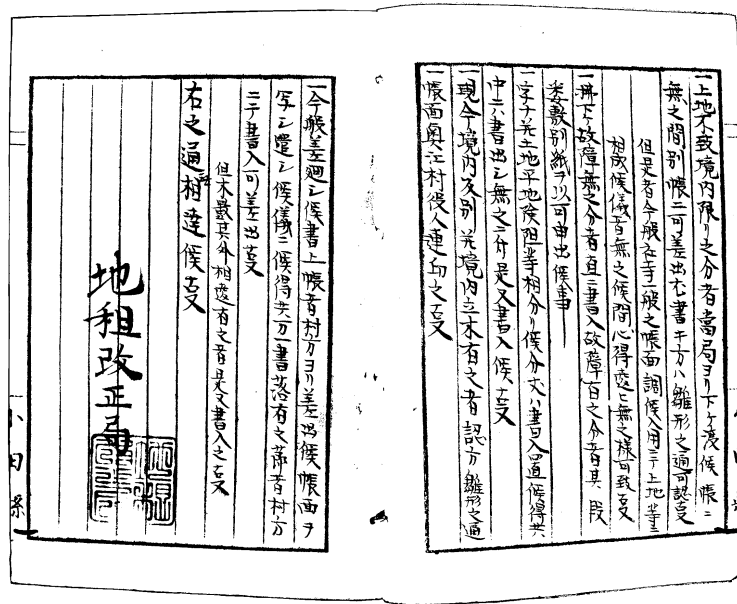 一上地不致境内限リ之分者當局ヨリ下ケ渡候帳ニ
無之間別帳ニ可差出尤書キ方ハ雛形之通可認事
但是者今般社寺一般之帳面調候入用ニテ上地等ニ
相成候儀ニ者無之候間心得違ヒ無之様可致事
一拂下ケ故障無之分者直ニ書入故障有之分者其段
委敷別紙ヲ以可申出候事
一字ナ并土地平地嶮阻等相分リ候分丈ハ書入置候得共
中ニハ書出シ無之ニ付是又書入候ナ事
一現今境内反別并境内立木有之者認方雛形之通
一帳面奥江村役人連印之事
一今般差廻シ候書上帳者村方ヨリ差出候帳面ヲ
写シ遣シ候儀ニ候得共万一書落有之節者村方
ニテ書入可差出事
但木數其外相違有之者是又書入之事
右之通相達候事
地租改正局
小田縣